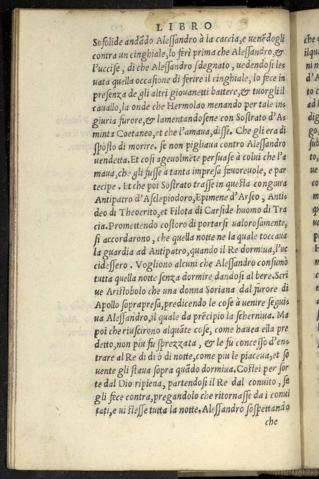 LIBRO
Se solide andãdo Alessandro à la caccia, e uenẽdogli
contra un cinghiale, lo ferì prima che Alessandro, &
l'uccise, di che Alessandro sdegnato, uedendosi le
uata quella occasione di ferire il cinghiale, lo fece in
presenza de gli altri giouanetti battere, & tuorgli il
cauallo, la onde che Hermolao menando per tale in
giuria furore, & lamentandosene con Sostrato d'A
minta Coetaneo, et che l'amaua, disse. Che gli era di
sposto di morire, se non pigliaua contro Alessandro
uendetta. Et cosi ageuolmẽte persuase à colui che l'a
maua, che gli fusse à tanta impresa fauoreuole, e par
tecipe. Et che poi Sostrato trasse in questa congiura
Antipatro d'Asclepiodoro, Epimene d'Arseo, Antis
deo di Theocrito, et Filota di Carside huomo di Tra
cia. Promettendo costoro di portarsi ualorosamente,
si accordarono, che quella notte ne la quale toccaua
la guardia ad Antipatro, quando il Re dormiua, l'uc
cidessero. Vogliono alcuni che Alessandro consumò
tutta quella notte senza dormire dandosi al bere. Scri
ue Aristobolo che una donna Soriana dal furore di
Apollo soprapresa, predicendo le cose à uenire seguis
ua Alessandro, il quale da prĩcipio la scherniua. Ma
poi che riuscirono alquãte cose, come hauea ella pre
detto, non piu fu sprezzata, & le fu concesso d'en
trare al Re di dì ò di notte, come piu le piaceua, et so
uente gli staua sopra quãdo dormiua. Costei per sor
te dal Dio ripiena, partendosi il Re dal conuito, se
gli fece contra, pregandolo che ritornasse da i conui
tati, e ui stesse tutta la notte. Alessandro sospettando
che